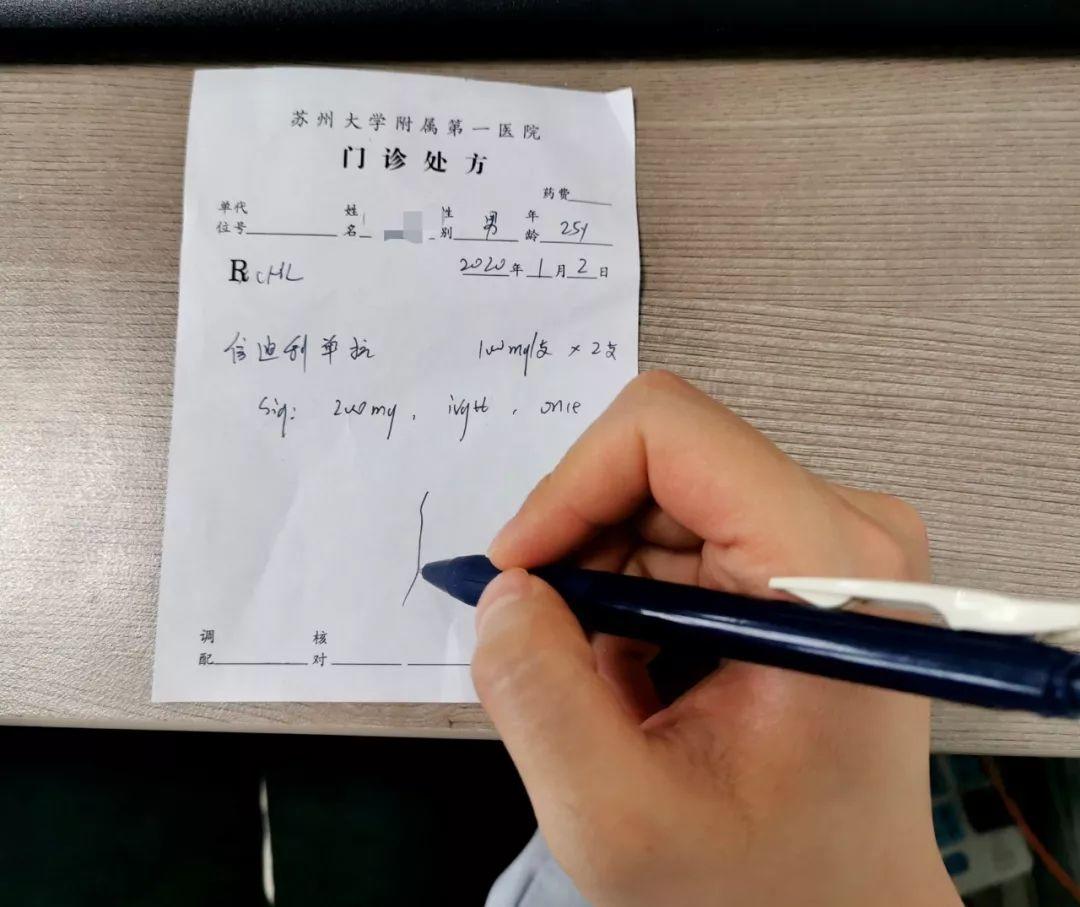 苏州大学附属第一医院
门诊处方
药费
单代 姓 性 年
位号 名 别 男 龄 25y
R cHL 2020年1月2日
信迪利单抗 100mg/支 × 2支
Sig: 200mg, ivgtt, once
调 核
配 对